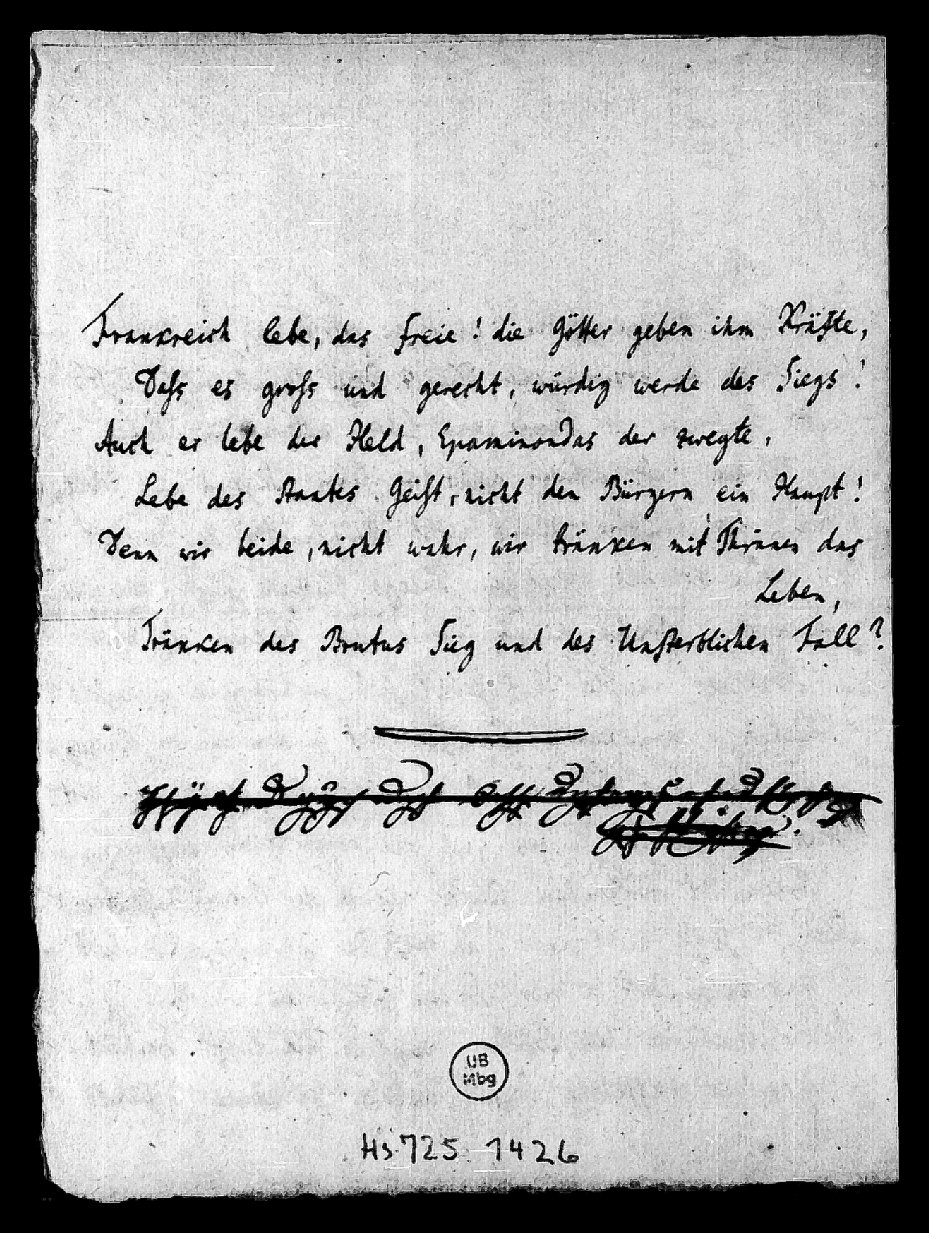 Frankreich lebe, das freie! die Götter geben ihm Kräfte,
Dass es gross und gerecht, würdig werde des Siegs!
Auch er lebe der Held, Epaminondas der zweyte,
Lebe des Staates Geist, nicht den Bürgern ein Haupt!
Denn wir beide, nicht wahr, wir tränken mit Thränen das
Leben,
Tränken des Brutus Sieg und des Unsterblichen Fall?
UB
Mbg
Hs 725 1426